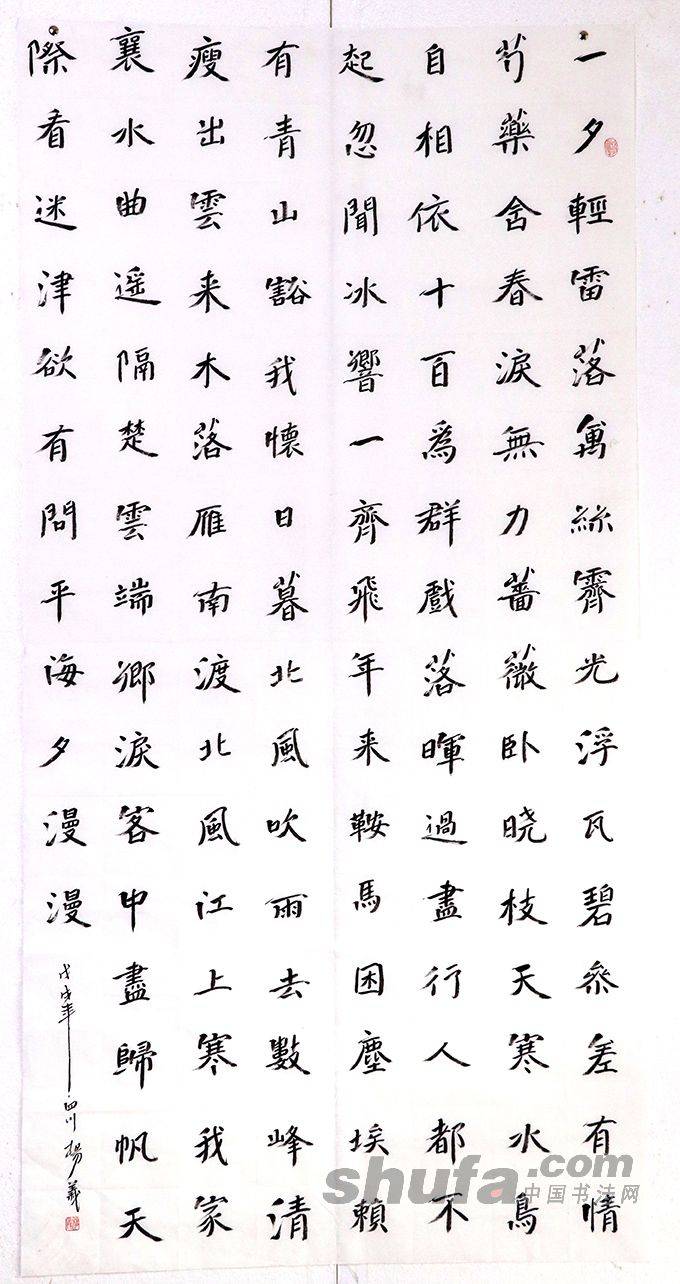 一夕輕雷落萬絲霽光浮瓦碧參差有情
芍藥含春淚無力薔薇卧晓枝天寒水鳥
自相依十百爲群戲落暉過盡行人都不
起忽聞冰響一齊飛年来鞍馬困塵埃賴
有青山豁我懷日暮北風吹雨去數峰清
瘦出雲来木落雁南渡北風江上寒我家
襄水曲遥隔楚雲端鄉淚客中盡歸帆天
際看迷津欲有問平海夕漫漫
戊戌年四川楊義
shufa.com
中国书法网